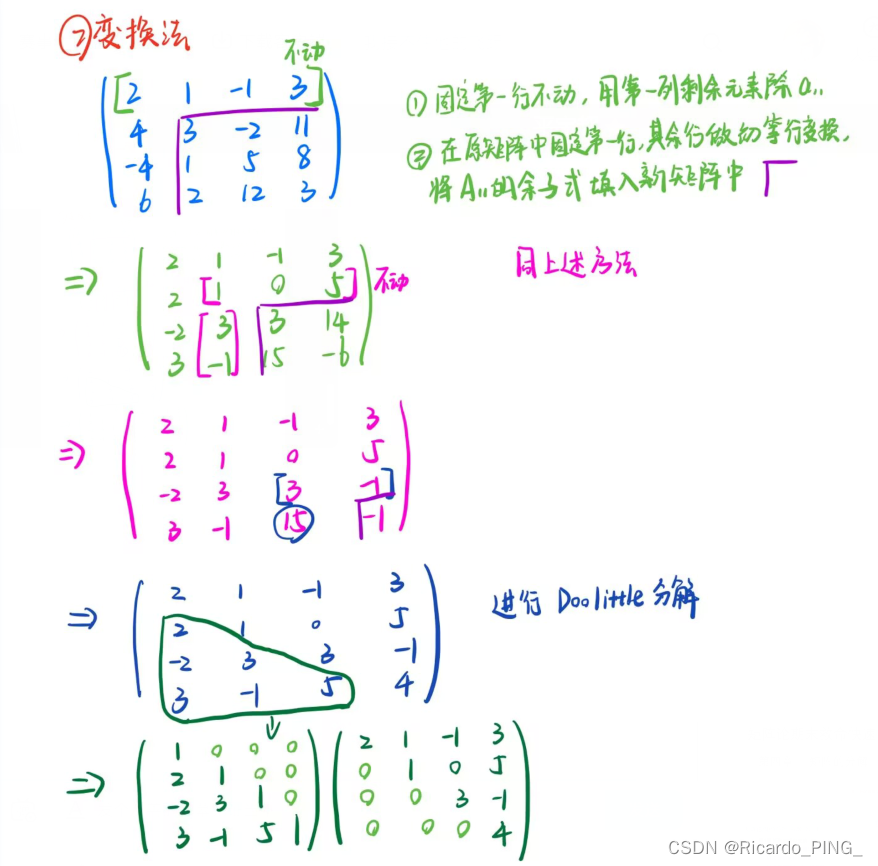 ②变换法
不动
2 1 -1 3
4 3 -2 11
-4 1 5 8
6 2 12 3
① 固定第一行不动，用第一列剩余元素除 a₁₁
② 在原矩阵中固定第一行，其余行做初等行变换，
将 A₁₁ 的余子式填入新矩阵中
⇒
2 1 -1 3
2 1 0 5 不动
-2 3 3 14
3 -1 15 -6
同上述方法
⇒
2 1 -1 3
2 1 0 5
-2 3 3 -1
3 -1 15 -1
⇒
2 1 -1 3
2 1 0 5
-2 3 3 -1
3 -1 5 4
进行 Doolittle 分解
⇒
1 0 0 0 2 1 -1 3
2 1 0 0 0 1 0 5
-2 3 1 0 0 0 3 -1
3 -1 5 1 0 0 0 4
CSDN @Ricardo_PING_